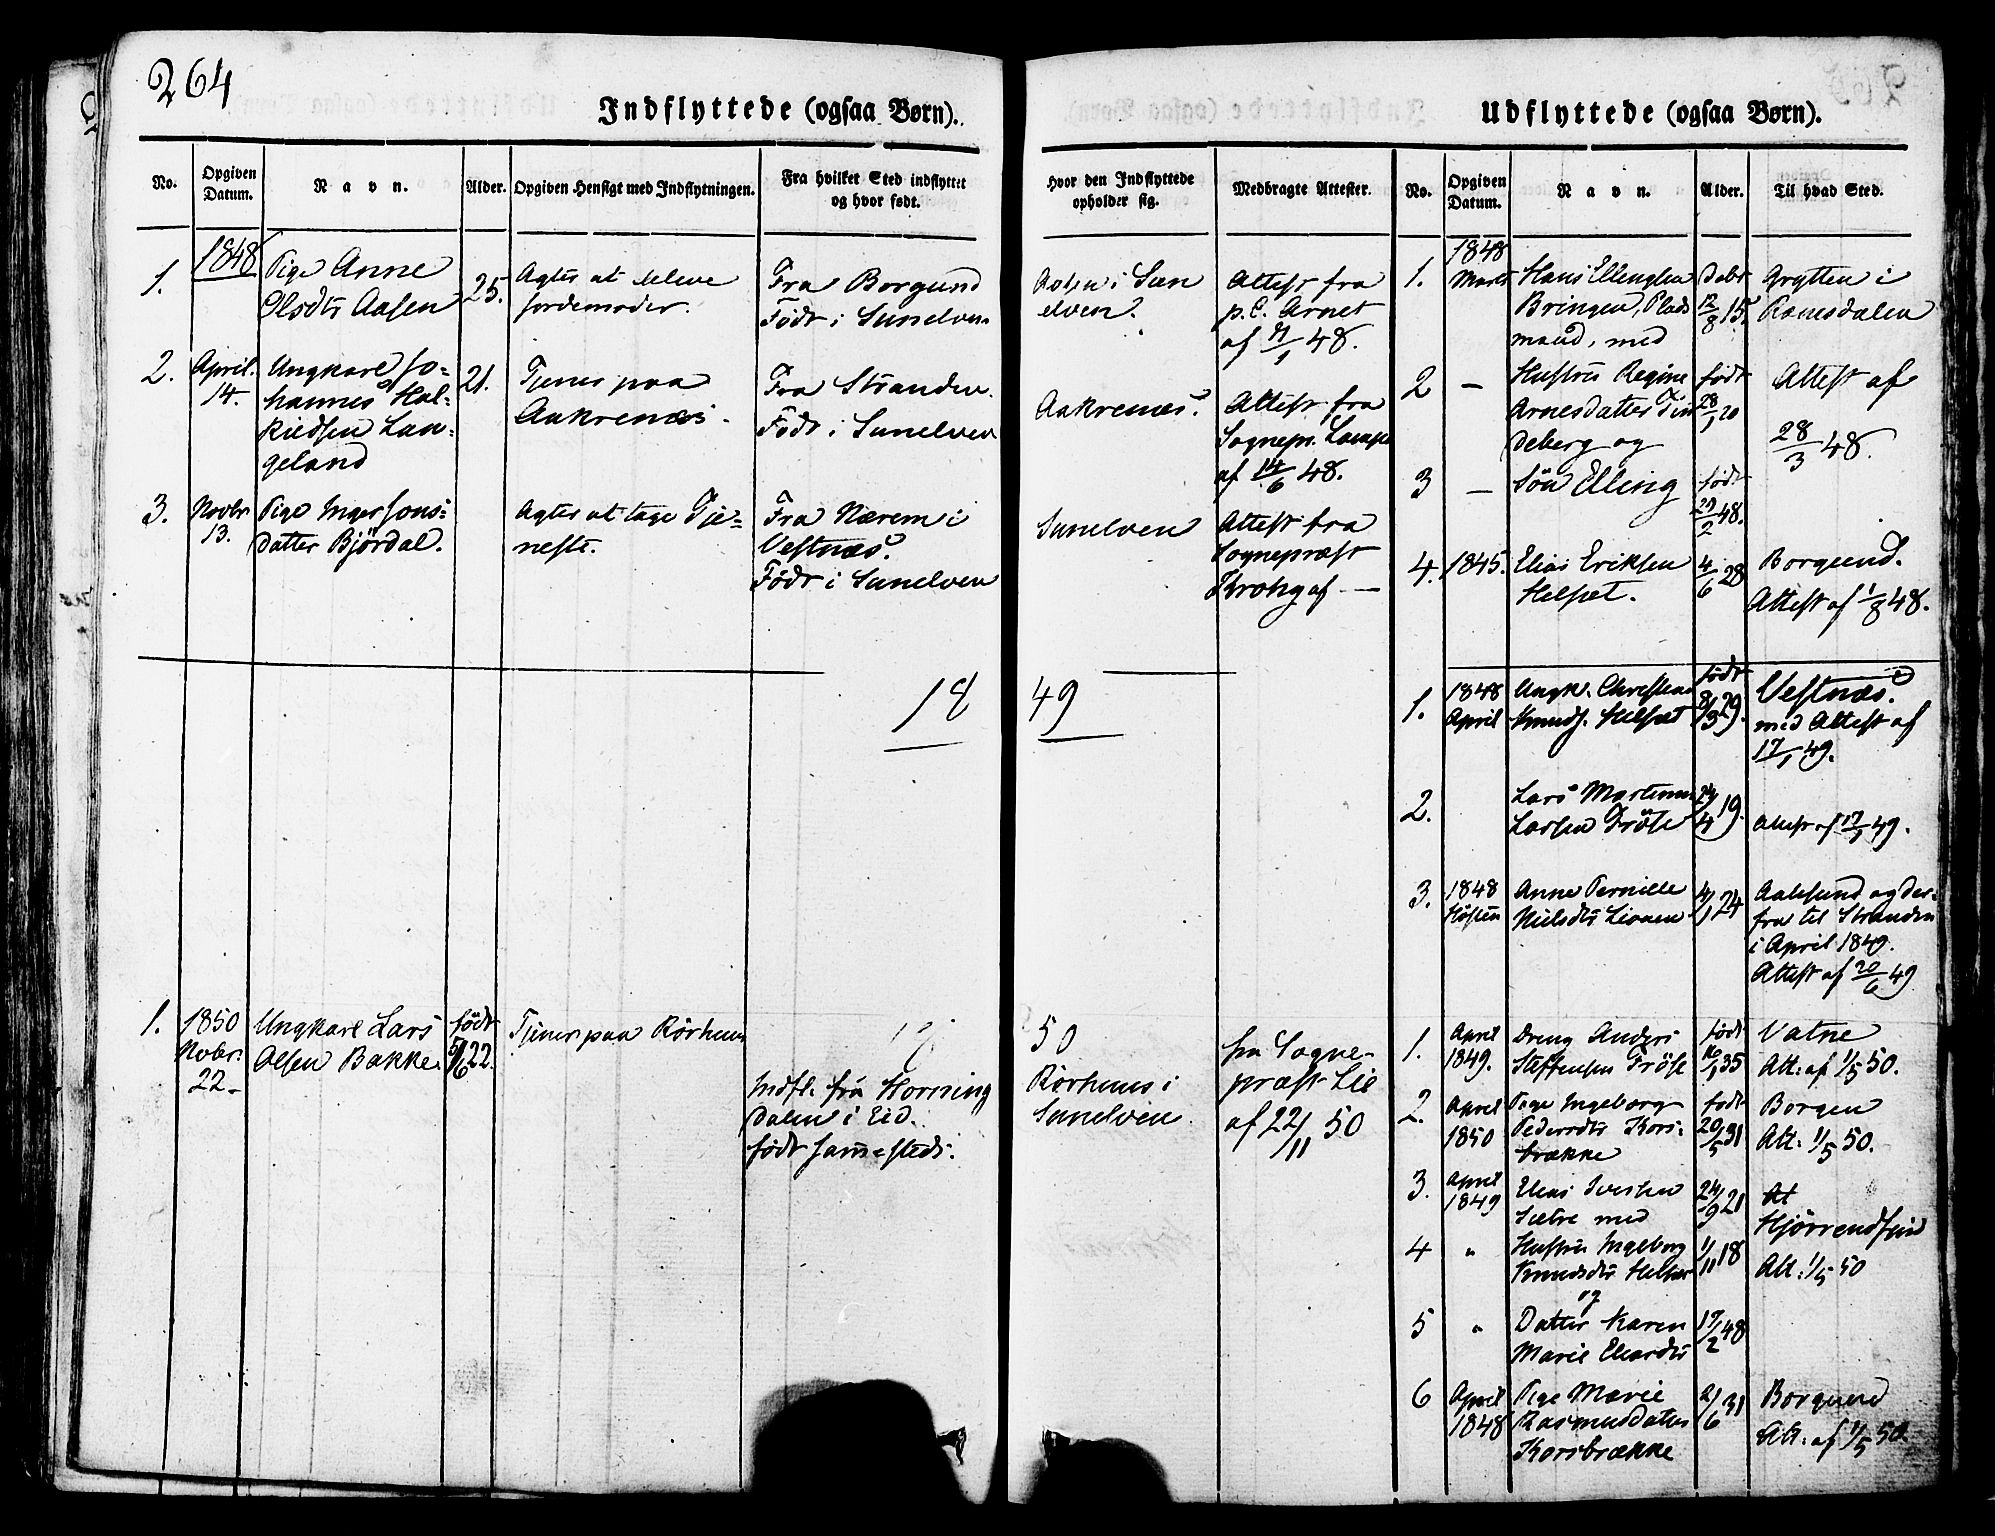 264
Indflyttede (ogsaa Børn).
No.
Opgiven Datum.
Navn.
Alder.
Opgiven Hensigt med Indflytningen.
Fra hvilket Sted indflyttet
og hvor født.
1.
1848
Pige Anne
Olsdtr Aasen
25.
Agter at blive
Jordemoder.
Fra Borgund
Født i Sunelven
2.
April.
14.
Ungkarl Jo=
hannes Hal=
kieldsen Lan=
geland
21.
Tjener paa
Aakrenæs.
Fra Stranden.
Født i Sunelven
3.
Novbr
13.
Pige Inger Jons=
datter Bjørdal.
Agter at tage Tje=
neste.
Fra Nærem i
Vestnæs.
Født i Sunelven
18
1.
1850
Novbr.
22
Ungkarl Lars
Olsen Bakke.
født
5/6 22.
Tjener paa Rørhuus
Indfl. fra Horning
dalen i Eid.
født sammesteds.
Udflyttede (ogsaa Børn).
Hvor den Indflyttede
opholder sig.
Medbragte Attester.
No.
Opgiven Datum.
Navn.
Alder.
Til hvad Sted.
Aasen i Sun
elven.
Attest fra
p. C. Arnet
af 11/1 48.
Aakrenæs.
Attest fra
Sognepr. Lampe
af 14/6 48.
Sunelven
Attest fra
Sognepræst
Krohg af —
49
50
Rørhuus i
Sunelven.
fra Sogne=
præst Lie
af 22/11 50
1.
1848
Marts
Hans Ellingsen
Bringen, Plads
mand, med
Døbt
12/8 15.
Grytten i
Romsdalen
2
—
Hustru Regine
Arnesdatter Lin
deberg og
født
28/1 20
Attest af
28/3 48.
3
—
Søn Elling
født
29/2 48.
4.
1845.
Elias Eriksen
Helset.
4/6 28
Borgund.
Attest af 1/8 48.
1.
1848
April
Ungk. Christian
Knuds. Helset
født
8/3 29.
Vestnæs.
med Attest af
17/1 49.
2.
Lars Martinus
Larsen Frøse
24/4 19.
Attest af 17/1 49.
3.
1848
Høsten
Anne Pernille
Nielsdtr Lianen
4/1 24
Aalesund og der=
fra til Stranden
i April 1849.
Attest af 20/6 49
1.
April
1849.
Dreng Anders
Steffensen Frøse
født
16/1 35
Vatne
Att: af 1/5 50.
2.
April
1850
Pige Ingeborg
Pedersdtr Kors=
brække
født
20/5 31
Borgen
Att: 1/5 50.
3.
April
1849
Elias Iversen
Sætre med
24/9 21
At
Hjørrendfjord
4
"
Hustru Ingeborg
Knudsdtr Helset
og
1/11 18
Att: 1/5 50
5
"
Datter Karen
Marie Eliasdtr
17/2 48
6
April
1848
Pige Marie
Rasmusdatter
Korsbrække
2/6 31
Borgund
Att: af 1/5 50